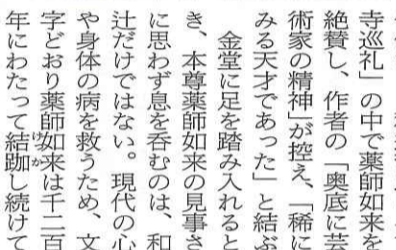 寺巡礼』の中で薬師如来を
絶賛し、作者の「奥底に芸
術家の精神」が控え、「稀に
みる天才であった」と結ぶ
金堂に足を踏み入れると
き、本尊薬師如来の見事さ
に思わず息を呑むのは、和
辻だけではない。現代の心
や身体の病を救うため、文
字どおり薬師如来は千二百
年にわたって結跏し続けて